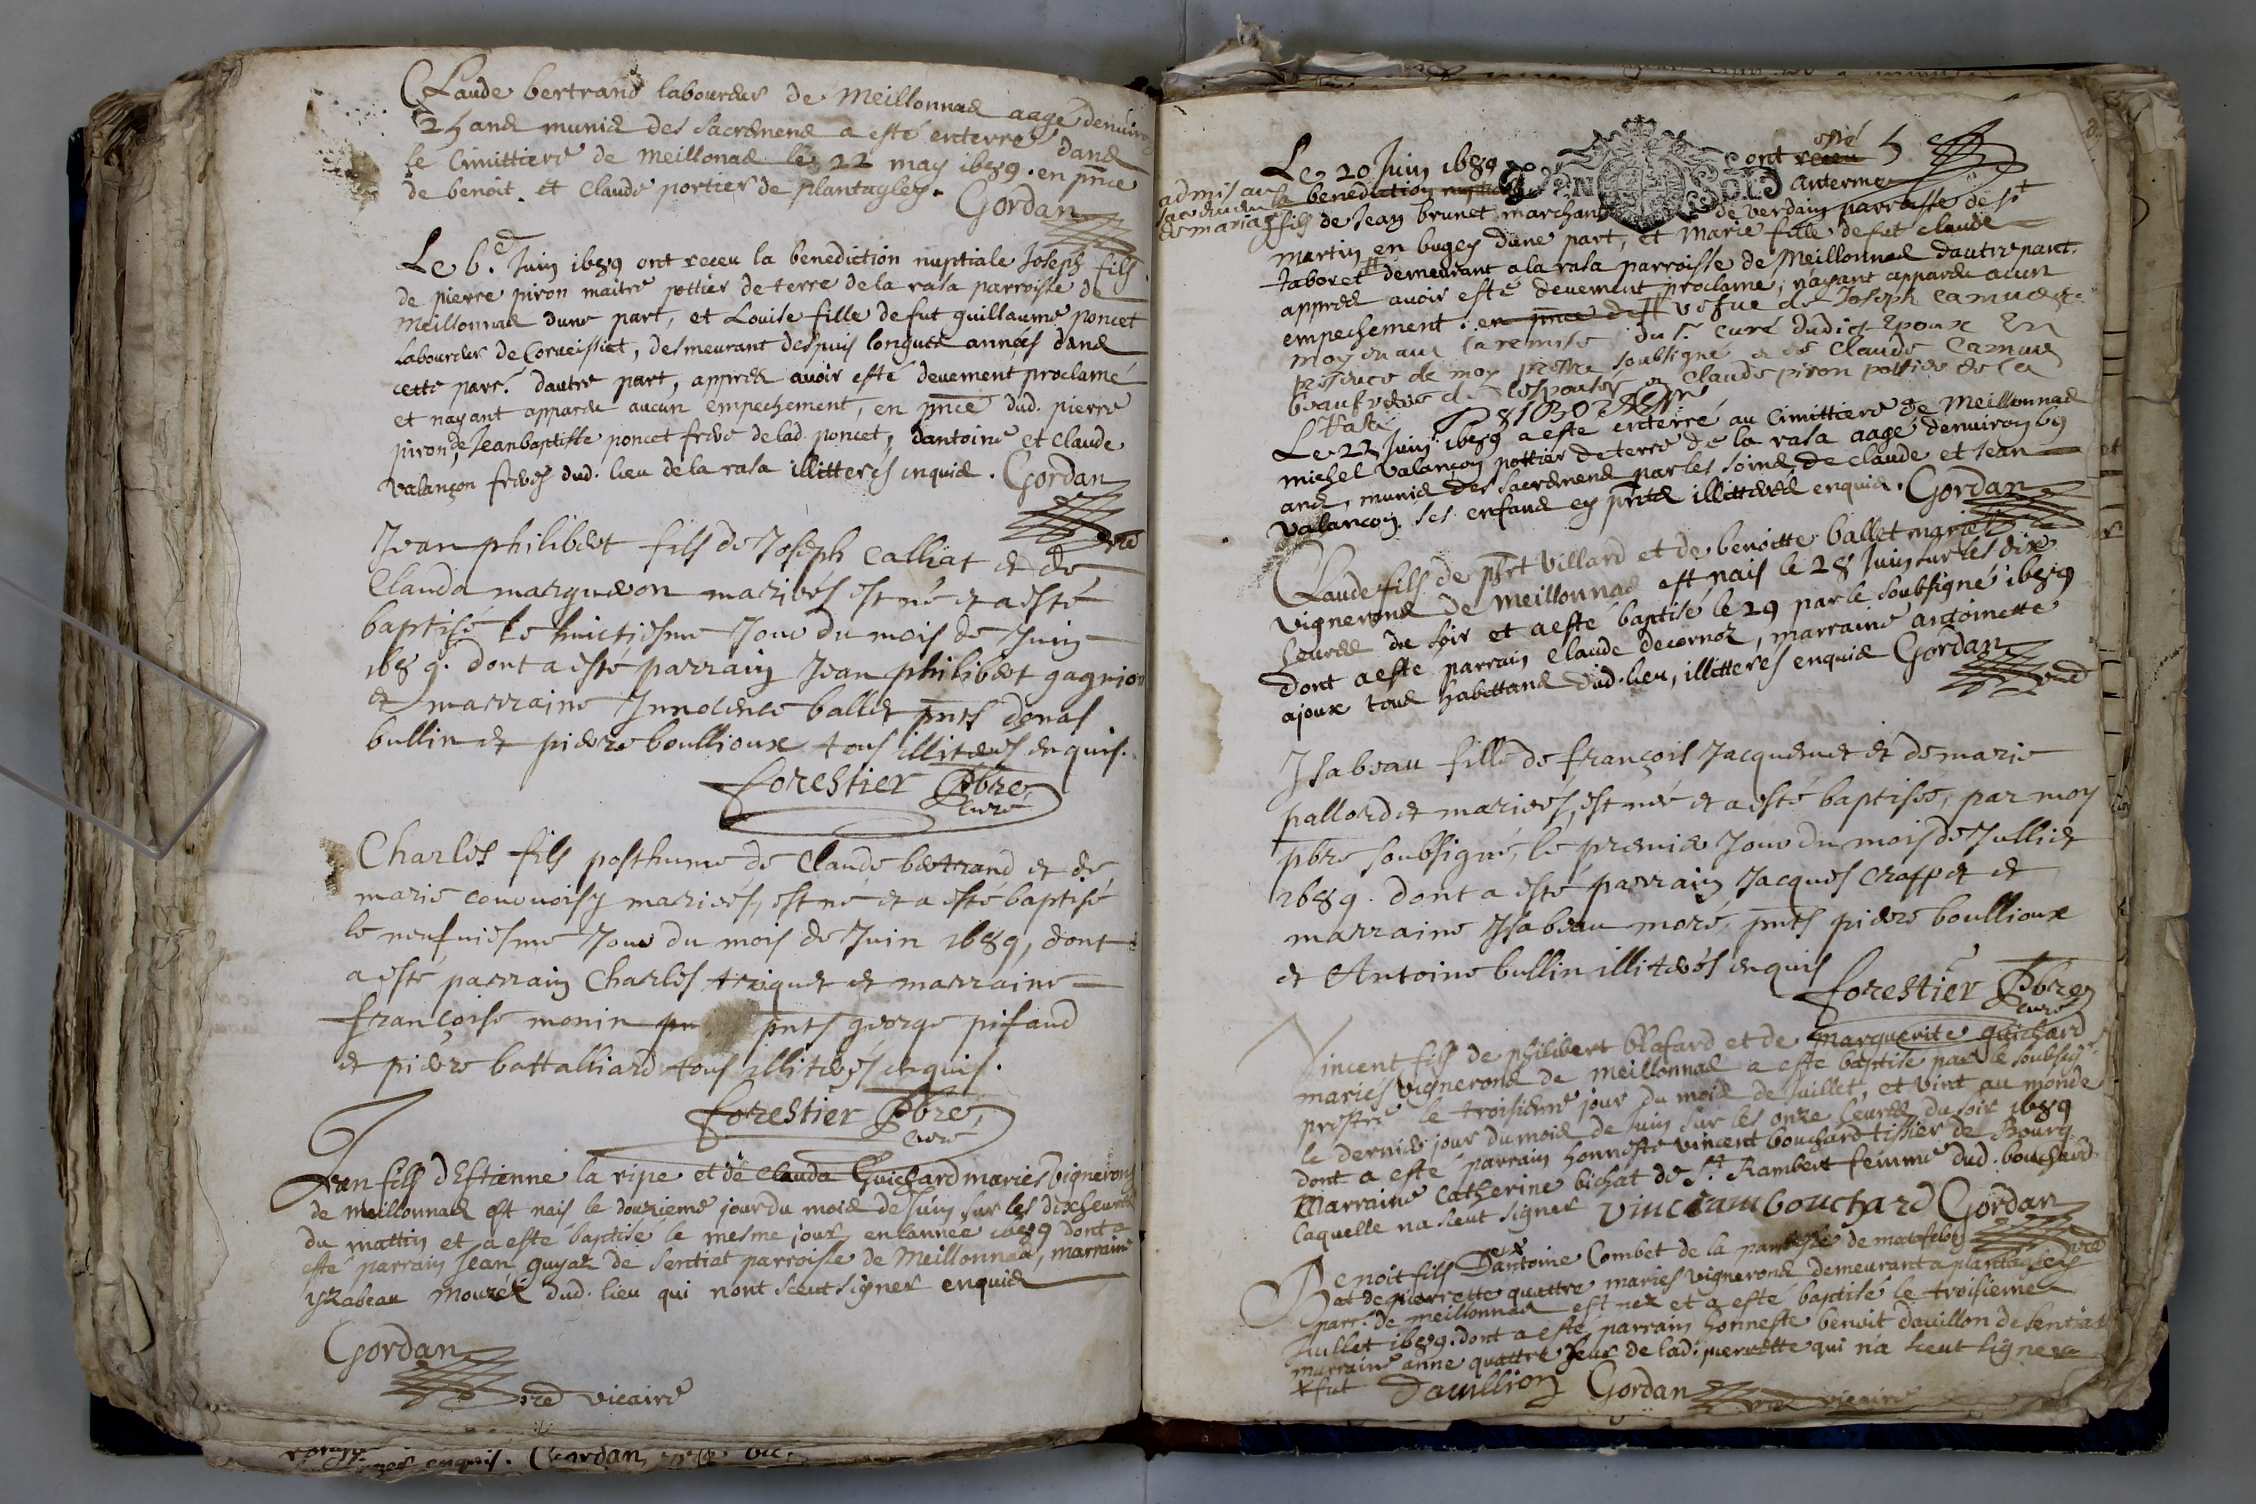 Claude bertrand laboureur de Meillonnas aagé denviron
25 ans munis des sacremens a esté enterré dans
le Cimittiere de Meillonas le 22 may 1689. en pnce
de benoit et Claude portier de plantagley. Gordan
Le 6e. Juin 1689 ont receu la benediction nuptiale Joseph fils
de pierre piron maitre pottier de terre de la rasa parroisse de
Meillonnas dune part, et Louise fille de fut guillaume poncet
laboureur de Corveissiat, desmeurant despuis longues années dans
cette parr. dautre part, appres avoir esté devement proclamé
et nayant apparu aucun empechement, en pnce dud. pierre
piron, de Jean baptiste poncet frere de lad. poncet, dantoine et claude
valançon freres dud. lieu de la rasa illitteres enquis. Gordan
vre
Jean philibert fils de Joseph Calliat et de
Clauda margueron mariés est né et a esté
baptisé le huictiesme Jour du mois de Juin
1689. dont a esté parrain Jean philibert gagnion
et marraine Innocence ballet pnts denas
bullin et pierre boullioux tous illiteres enquis.
forestier Pbre
curé
Charles fils posthume de Claude bertrand et de
marie convoisy mariés, est né et a esté baptisé
le neufviesme Jour du mois de Juin 1689, dont
a esté parrain Charles triquet et marraine
françoise monin pn pnts george pifaud
et pierre battalliard tous illiterés enquis.
forestier Pbre
curé
Jean fils dEstienne la ripe et de Clauda Guichard maries vignerons
de Meillonnas est nais le douzieme jour du mois de Juin sur les dix heures
du mattin et a esté baptisé le mesme jour en lannée 1689 dont a
esté parrain Jean guyaz de Sentiat parroisse de Meillonnas, marraine
yzabeau Mourez dud. lieu qui nont sceut signer enquis
Gordan
vre vicaire
enquis. Gordan vic.
Le 20 Juin 1689 ont receu esté
admis au sacrement de mariage
la benediction nuptiale Anterme
fils de Jean brunet marchand de verdain parroisse de st
Martin en bugey dune part, et Marie fille de fut claude
Taboret # demeurant a la rasa parroisse de Meillonnas dautre part
appres avoir esté devement proclamé, nayant apparu aucun
empechement. en pnce de # vefue de Joseph Camus &c
moyenant la remise du sr. curé dudict Epoux En
presence de moy prestre soubsigné et de Claude Camus
beaufrere de lespouse et Claude piron pottier de la
rasa
Le 22 Juin 1689 a esté enterré au Cimittiere de Meillonnas
michel valançon pottier de terre de la rasa aagé denviron 69
ans, munis des sacremens par les soins de claude et Jean
valançon ses enfans en pnce illitteres enquis. Gordan
vre
Claude fils de pbrt villard et de benoitte ballet mariez
vignerons de Meillonnas est nais le 28 Juin sur les dix
heures du soir et a esté baptisé le 29 par le soubsigné 1689
dont a esté parrain claude decornoz, marraine antoinette
ajoux tous habittans dud. lieu, illitterés enquis Gordan
vre
Isabeau fille de françois Jacquemet et de marie
pallordet mariés, est née et a esté baptisée, par moy
pbre soubsigné, le premier Jour du mois de Jullict
1689. dont a esté parrain Jacques crappet et
marraine Isabeau moré, pnts pierre boullioux
et Antoine bullin illiterés enquis
forestier Pbre
curé
Vincent fils de philibert blafard et de marguerite guichard
mariés vignerons de Meillonnas a esté baptisé par le soubsigné
prestre le troisieme jour du mois de Juillet, et vint au monde
le dernier jour du mois de Juin sur les onze heures du soir 1689
dont a esté parrain honneste vincent bouchard tissier de Bourg
Marraine Catherine bichat de St. Rambert femme dud. bouchard
laquelle na sceut signer vincent bouchard Gordan
vre
Benoit fils Dantoine x Combet de la parroisse de matafelon
et de pierrette quattre mariés vignerons demeurant a plantagley
parr. de Meillonnas est nez et a esté baptisé le troisieme
Juillet 1689. dont a esté parrain honneste benoit davillon de Sentiat
marraine anne quattre soeur de lad. pierrette qui na sceut signer
x fut Davillion Gordan vre vicaire